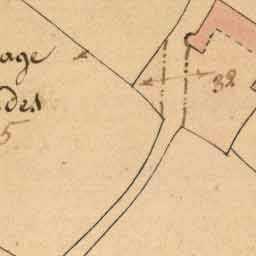 age
des
5
32